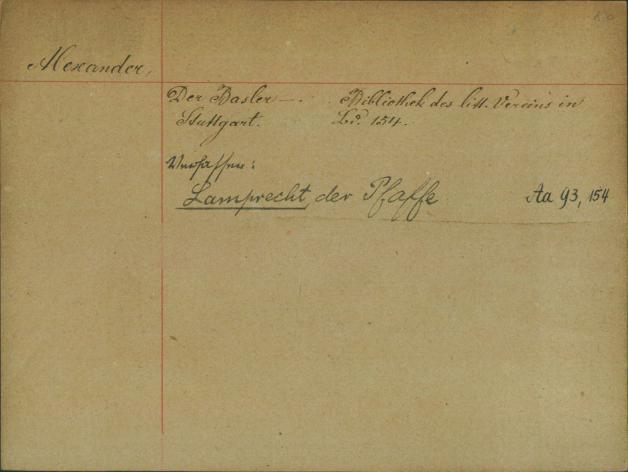 Alexander,
Der Basler —. Bibliothek des litt. Vereins in
Stuttgart. Bd. 154.
Verfasser:
Lamprecht, der Pfaffe Aa 93, 154